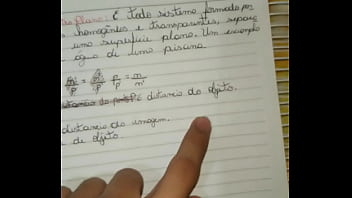 Plano: É todo sistema formado por
homogêneos e transparentes, separa
uma superfície plana. Um exemplo
água de uma piscina
p/p' = n/n'
é distancia do objeto.
distancia da imagem.
de objeto.